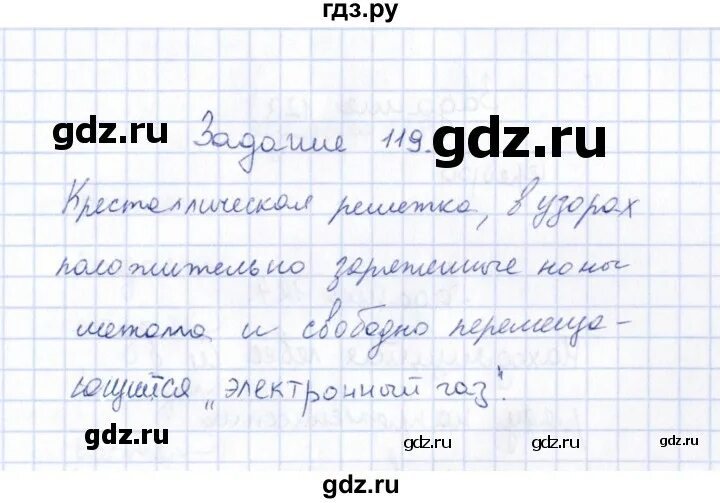 гдз.ру
gdz.ru Задание 119. gdz.ru
Кресталлическая решетка, в узорах
положительно заряженные ионы
металла и свободно перемеща-
ющийся „электронный газ".
gdz.ru gdz.ru gdz.ru gdz.ru
gdz.ru